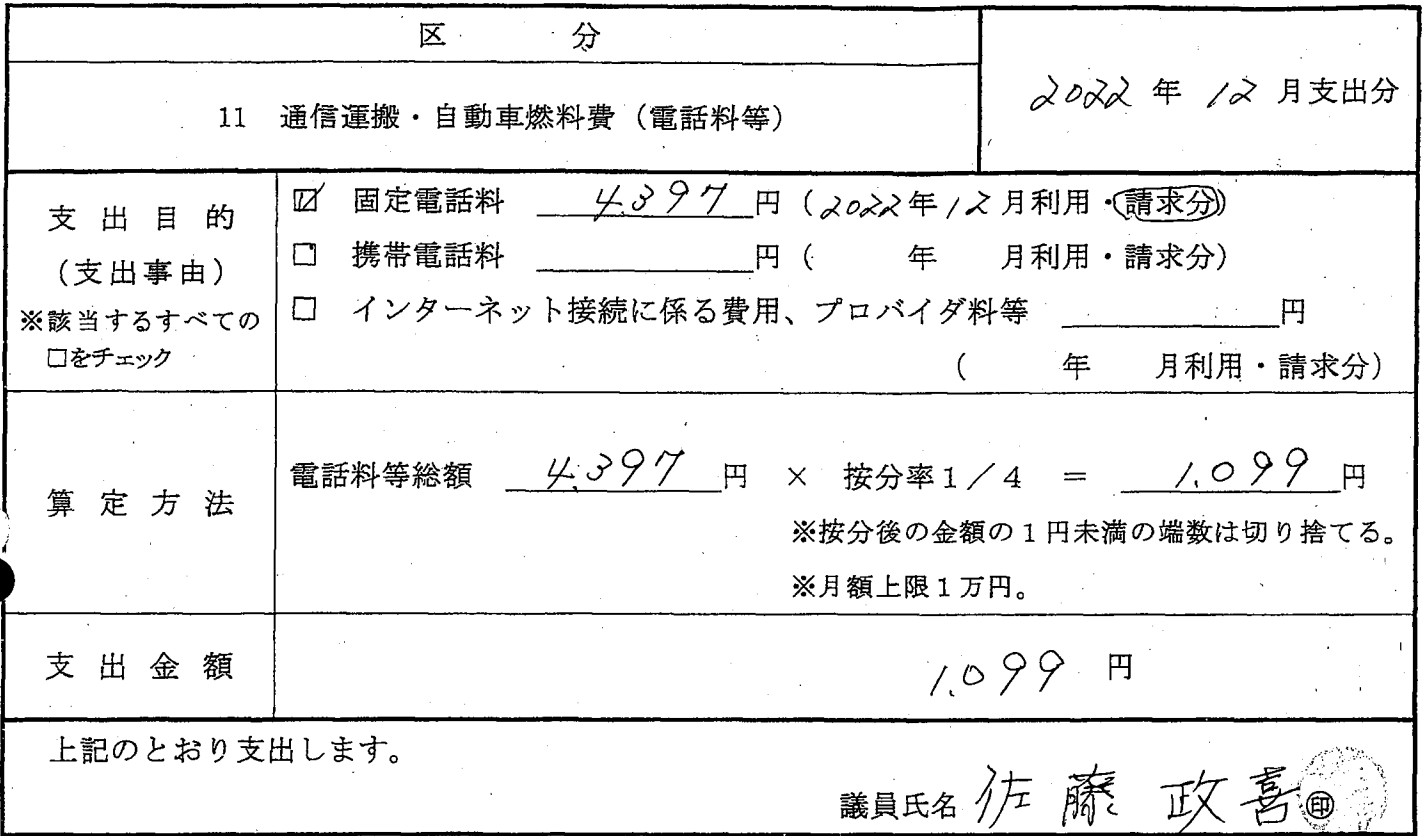 区 分
11 通信運搬・自動車燃料費(電話料等)
2022 年 12 月支出分
支出目的
(支出事由)
※該当するすべての
□をチェック
☑ 固定電話料 4,397 円(2022年12月利用・請求分)
□ 携帯電話料 円( 年 月利用・請求分)
□ インターネット接続に係る費用、プロバイダ料等 円
( 年 月利用・請求分)
算定方法
電話料等総額 4,397 円 × 按分率1/4 = 1,099 円
※按分後の金額の1円未満の端数は切り捨てる。
※月額上限1万円。
支出金額
1,099 円
上記のとおり支出します。
議員氏名 佐藤 政喜 ㊞